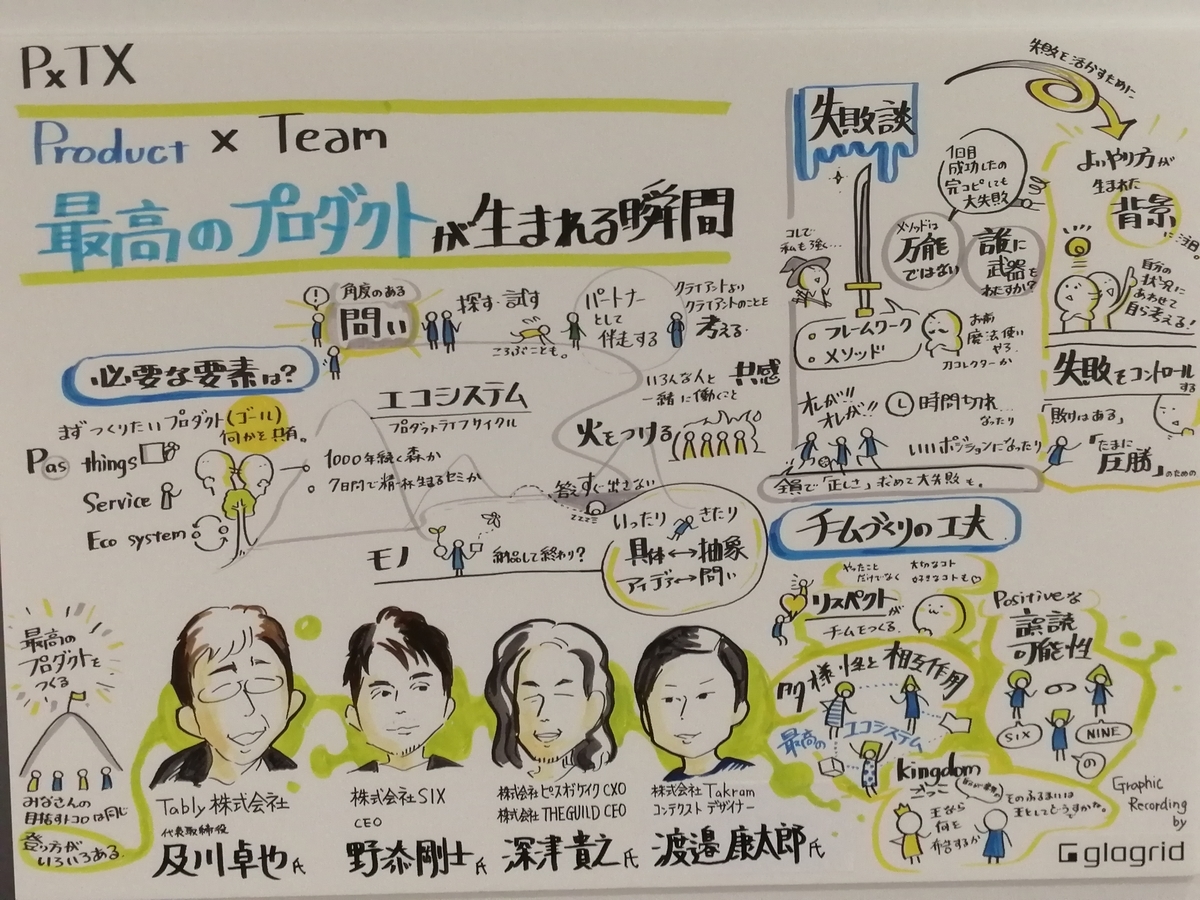 PxTX
Product x Team
最高のプロダクトが生まれる瞬間
必要な要素は?
角度のある
問い
探す・試す
ころぶことも。
パートナー
として
伴走する
クライアントより
クライアントのことを
考える
まずつくりたいプロダクト(ゴール)
何かを共有。
Pas things
Service
Eco system
エコシステム
プロダクトライフサイクル
1000年続く森か
7日間で精一杯生まるセミか
いろんな人と
一緒に働くこと
共感
火をつける
答えすぐ出さない
zzzz
モノ
納品して終わり?
いったり きたり
具体↔抽象
アイデア↔問い
失敗談
1回目
成功したの
完コピしても
大失敗
メソッドは
万能
ではない
誰に
武器を
わたすか?
コレで
私も強く…
フレームワーク
メソッド
お前
魔法使い
やろ
刀コレクターか
オレが!!
オレが!!
時間切れ
なったり
いいポジションになったり
全員で「正しさ」求めて大失敗も。
失敗を活かすために
よいやり方が
生まれた
背景
に注目
自分の
状況に
あわせて
自ら考える!
失敗をコントロール
する
「敗けはある」
「たまに
圧勝」
のための
チームづくりの工夫
やったこと
だけでなく
大切なコト
好きなコトも
リスペクトが
チームをつくる
Positiveな
誤読
の可能性
SIX
の
NINE
の
多様性と相互作用
最高の
エコシステム
kingdom
ごっこ
王なら
何を
そのふるまいは
王としてどうすか。
最高の
プロダクトを
つくる
みなさんの
目指すトコロは同じ
登り方が
いろいろある
Tably 株式会社
代表取締役
及川卓也氏
株式会社SIX
CEO
野添剛士氏
株式会社ピースオブケイク CXO
株式会社 THE GUILD CEO
深津貴之氏
株式会社 Takram
コンテクストデザイナー
渡邉康太郎氏
Graphic
Recording
by
glagrid